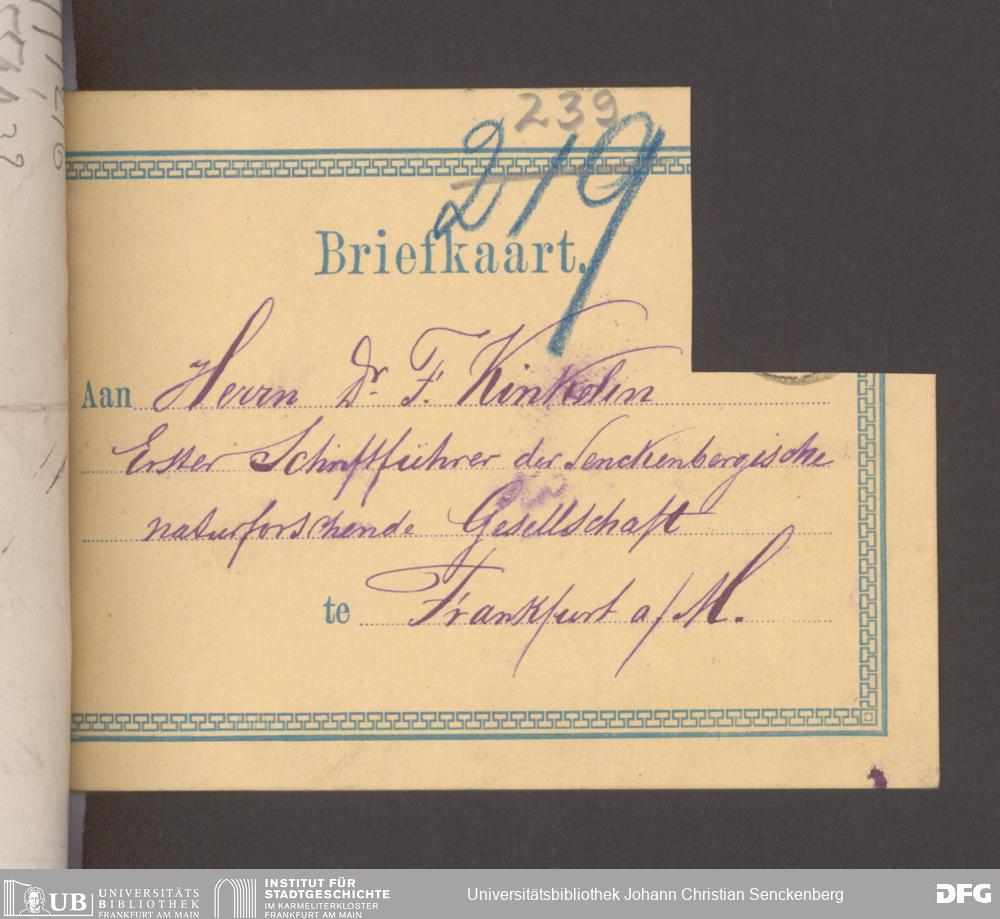 239
219
Briefkaart.
Aan Herrn Dr. F. Kinkelin
Erster Schriftführer der Senckenbergische
naturforschende Gesellschaft
te Frankfurt a/M.
UB UNIVERSITÄTS
BIBLIOTHEK
FRANKFURT AM MAIN
INSTITUT FÜR
STADTGESCHICHTE
IM KARMELITERKLOSTER
FRANKFURT AM MAIN
Universitätsbibliothek Johann Christian Senckenberg
DFG